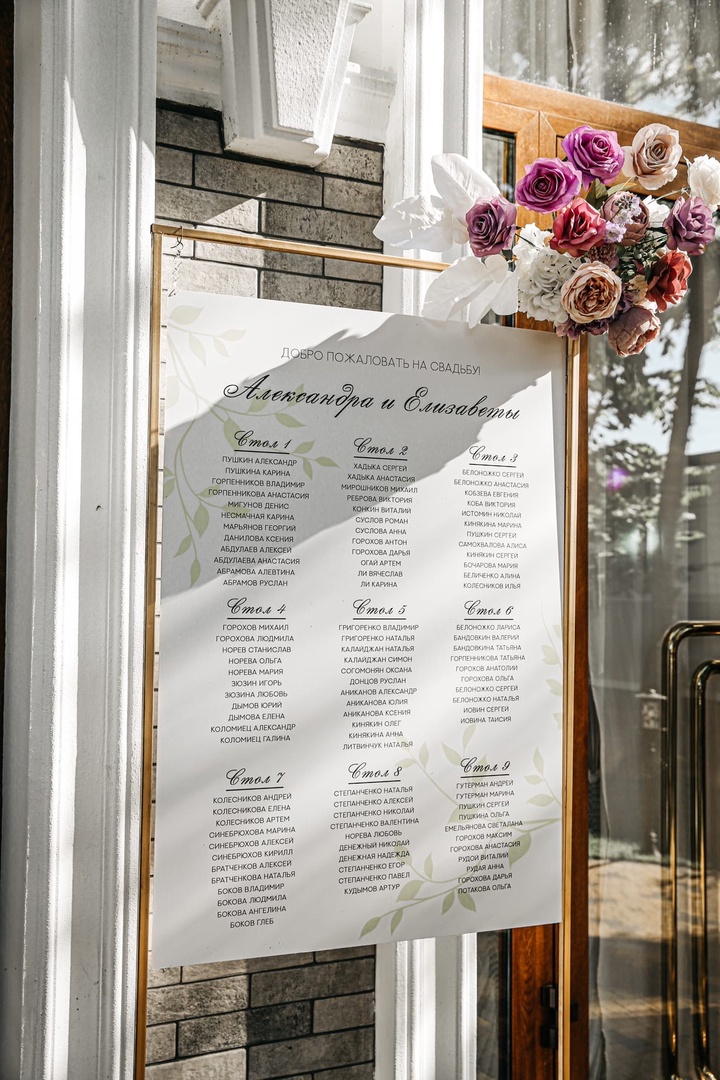 ДОБРО ПОЖАЛОВАТЬ НА СВАДЬБУ!
Александра и Елизаветы
Стол 1
ПУШКИН АЛЕКСАНДР
ПУШКИНА КАРИНА
ГОРПЕННИКОВ ВЛАДИМИР
ГОРПЕННИКОВА АНАСТАСИЯ
МИГУНОВ ДЕНИС
НЕСМАЧНАЯ КАРИНА
МАРЬЯНОВ ГЕОРГИЙ
ДАНИЛОВА КСЕНИЯ
АБДУЛАЕВ АЛЕКСЕЙ
АБДУЛАЕВА АНАСТАСИЯ
АБРАМОВА АЛЕВТИНА
АБРАМОВ РУСЛАН
Стол 2
ХАДЫКА СЕРГЕЙ
ХАДЫКА АНАСТАСИЯ
МИРОШНИКОВ МИХАИЛ
РЕБРОВА ВИКТОРИЯ
КОНКИН ВИТАЛИЙ
СУСЛОВ РОМАН
СУСЛОВА АННА
ГОРОХОВ АНТОН
ГОРОХОВА ДАРЬЯ
ОГАЙ АРТЕМ
ЛИ ВЯЧЕСЛАВ
ЛИ КАРИНА
Стол 3
БЕЛОНОЖКО СЕРГЕЙ
БЕЛОНОЖКО АНАСТАСИЯ
КОБЗЕВА ЕВГЕНИЯ
КОБА ВИКТОРИЯ
ИСТОМИН НИКОЛАЙ
КИНЯКИНА МАРИНА
ПУШКИН СЕРГЕЙ
САМОХВАЛОВА АЛИСА
КИНЯКИН СЕРГЕЙ
БОЧАРОВА МАРИЯ
БЕЛИЧЕНКО АЛИНА
КОЛЕСНИКОВ ИЛЬЯ
Стол 4
ГОРОХОВ МИХАИЛ
ГОРОХОВА ЛЮДМИЛА
НОРЕВ СТАНИСЛАВ
НОРЕВА ОЛЬГА
НОРЕВА МАРИЯ
ЗЮЗИН ИГОРЬ
ЗЮЗИНА ЛЮБОВЬ
ДЫМОВ ЮРИЙ
ДЫМОВА ЕЛЕНА
КОЛОМИЕЦ АЛЕКСАНДР
КОЛОМИЕЦ ГАЛИНА
Стол 5
ГРИГОРЕНКО ВЛАДИМИР
ГРИГОРЕНКО НАТАЛЬЯ
КАЛАЙДЖАН НАТАЛЬЯ
КАЛАЙДЖАН СИМОН
СОГОМОНЯН ОКСАНА
ДОНЦОВ РУСЛАН
АНИКАНОВ АЛЕКСАНДР
АНИКАНОВА ЮЛИЯ
АНИКАНОВА КСЕНИЯ
КИНЯКИН ОЛЕГ
КИНЯКИНА АННА
ЛИТВИНЧУК НАТАЛЬЯ
Стол 6
БЕЛОНОЖКО ЛАРИСА
БАНДОВКИН ВАЛЕРИЙ
БАНДОВКИНА ТАТЬЯНА
ГОРПЕННИКОВА ТАТЬЯНА
ГОРОХОВ АНАТОЛИЙ
ГОРОХОВА ОЛЬГА
БЕЛОНОЖКО СЕРГЕЙ
БЕЛОНОЖКО НАТАЛЬЯ
ИОВИН СЕРГЕЙ
ИОВИНА ТАИСИЯ
Стол 7
КОЛЕСНИКОВ АНДРЕЙ
КОЛЕСНИКОВА ЕЛЕНА
КОЛЕСНИКОВ АРТЕМ
СИНЕБРЮХОВА МАРИНА
СИНЕБРЮХОВ АЛЕКСЕЙ
СИНЕБРЮХОВ КИРИЛЛ
БРАТЧЕНКОВ АЛЕКСЕЙ
БРАТЧЕНКОВА НАТАЛЬЯ
БОКОВ ВЛАДИМИР
БОКОВА ЛЮДМИЛА
БОКОВА АНГЕЛИНА
БОКОВ ГЛЕБ
Стол 8
СТЕПАНЧЕНКО НАТАЛЬЯ
СТЕПАНЧЕНКО АЛЕКСЕЙ
СТЕПАНЧЕНКО НИКОЛАЙ
СТЕПАНЧЕНКО ВАЛЕНТИНА
НОРЕВА ЛЮБОВЬ
ДЕНЕЖНЫЙ НИКОЛАЙ
ДЕНЕЖНАЯ НАДЕЖДА
СТЕПАНЧЕНКО ЕГОР
СТЕПАНЧЕНКО ПАВЕЛ
КУДЫМОВ АРТУР
Стол 9
ГУТЕРМАН АНДРЕЙ
ГУТЕРМАН МАРИНА
ПУШКИН СЕРГЕЙ
ПУШКИНА ОЛЬГА
ЕМЕЛЬЯНОВА СВЕТАЛАНА
ГОРОХОВ МАКСИМ
ГОРОХОВА АНАСТАСИЯ
РУДОЙ ВИТАЛИЙ
РУДАЯ АННА
ГОРОХОВА ДАРЬЯ
ПОТАКОВА ОЛЬГА